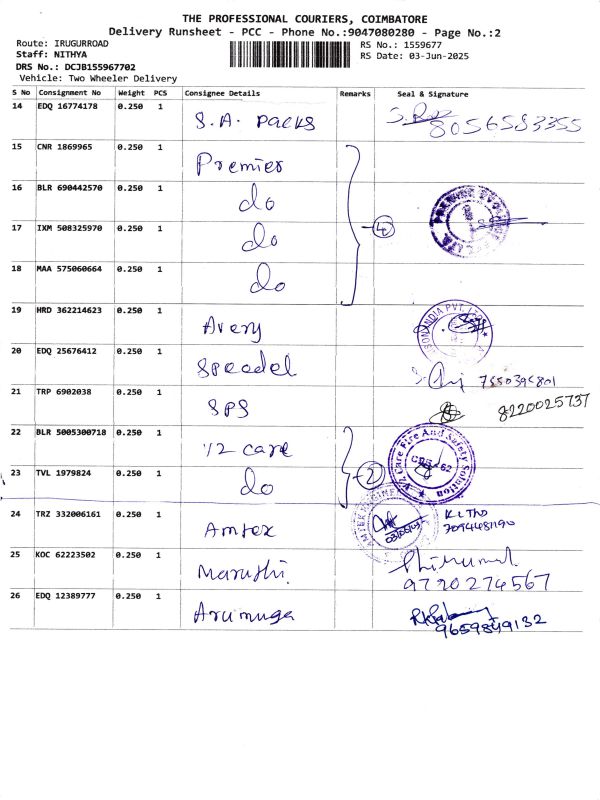 THE PROFESSIONAL COURIERS, COIMBATORE
Delivery Runsheet - PCC - Phone No.:9047080280 - Page No.:2
Route: IRUGURROAD
Staff: NITHYA
DRS No.: DCJB155967702
Vehicle: Two Wheeler Delivery
RS No.: 1559677
RS Date: 03-Jun-2025
S No Consignment No Weight PCS Consignee Details Remarks Seal & Signature
14 EDQ 16774178 0.250 1 S.A. Packs 8056583355
15 CNR 1869965 0.250 1 Premier
16 BLR 690442570 0.250 1 do
17 IXM 508325970 0.250 1 do 4
18 MAA 575060664 0.250 1 do
19 HRD 362214623 0.250 1 Avery
20 EDQ 25676412 0.250 1 Speedel
21 TRP 6902038 0.250 1 SPS 8220025737
22 BLR 5005300718 0.250 1 V2 care
23 TVL 1979824 0.250 1 do 2 V2 Care Fire And Safety Solution
24 TRZ 332006161 0.250 1 Amtex 7094481190
25 KOC 62223502 0.250 1 Maruthi 9720274567
26 EDQ 12389777 0.250 1 Arumuga 9659849132